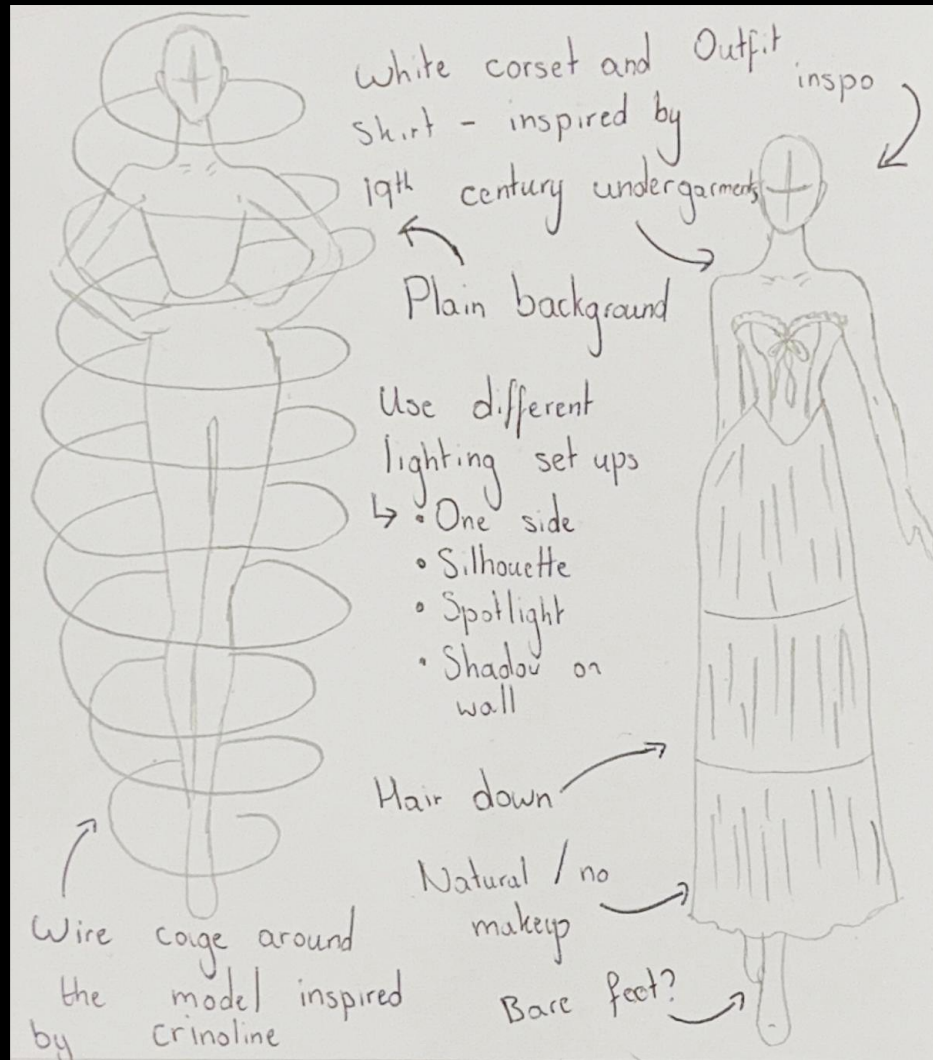 White corset and
skirt - inspired by
19th century undergarments
Outfit
inspo
Plain background
Use different
lighting set ups
↳ • One side
• Silhouette
• Spotlight
• Shadow on
wall
Hair down
Natural / no
makeup
Bare feet?
Wire cage around
the model inspired
by crinoline